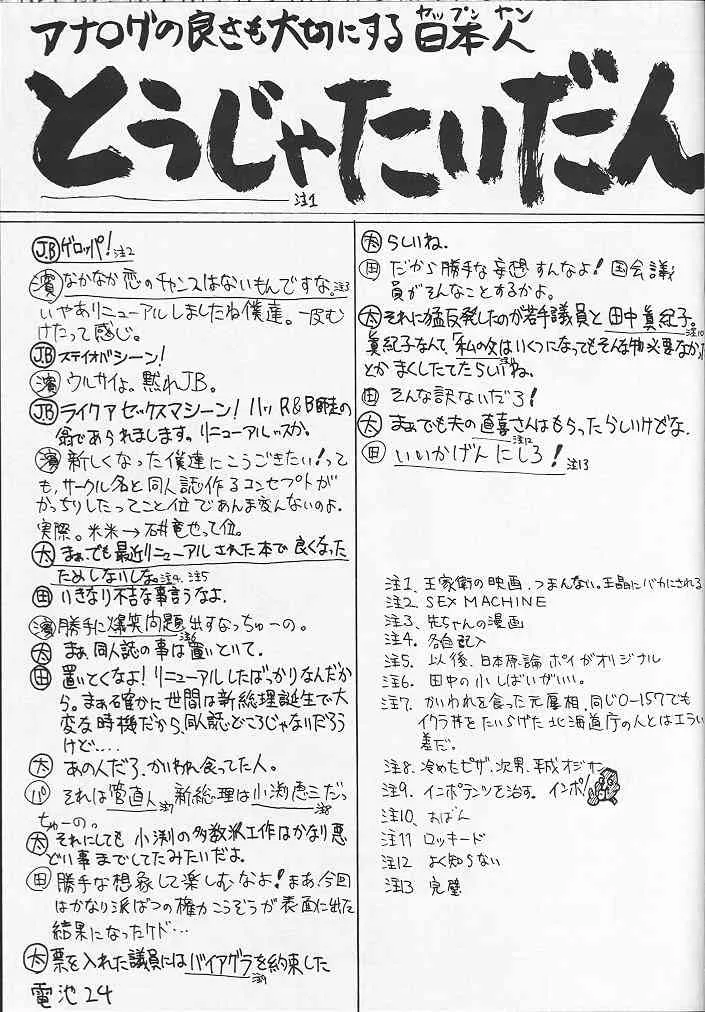 アナログの良さも大切にする日本人
ヤップン ヤン
とうじゃたいだん
注1
J.B ゲロッパ! 注2
濱 なかなか恋のチャンスはないもんですな。注3
いやありニューアルしましたね僕達。一皮む
けたって感じ。
JB ステイオバシーン!
濱 ウルサイよ。黙れJB。
JB ライクアセックスマシーン! ハッ R&B師走の
翁であられまします。リニューアルッスか。
濱 新しくなった僕達にこうごきたい!って
も、サークル名と同人誌作るコンセプトが
かっちりしたってこと位であんま変んないのよ.
実際。米米→石井竜也って位。
太 まぁでも最近リニューアルされた本で良くなった
ためしないしな。注4. 注5
田 いきなり不吉な事言うなよ.
濱 勝手に爆笑問題出すなっちゅーの。
注6
太 まぁ同人誌の事は置いといて.
田 置いとくなよ! リニューアルしたばっかりなんだか
ら。まぁ確かに世間は新総理誕生で大
変な時機だから、同人誌どころじゃないだろう
けど‥‥
太 あの人だろ、かいわれ食ってた人。
パ それは菅直人 新総理は小渕恵三だっ
注7 注8
ちゅーの。
太 それにしても小渕の多数派工作はかなり悪
どい事までしてたみたいだよ.
田 勝手な想象して楽しむなよ! まあ、今回
はかなり派ばつの権力こうぞうが表面に出た
結果になったケド…
太 票を入れた議員にはバイアグラを約束した
注9
電池24
太 らしいね.
田 だから勝手な妄想すんなよ! 国会議
員がそんなことするかよ。
太 それに猛反発したのが若手議員と田中眞紀子。
注10
眞紀子なんて、「私の父はいくつになってもそんな物必要なかった」
注11
とかまくしたててたらしいね。
田 そんな訳ないだろ!
太 まぁでも夫の直喜さんはもらったらしいけどな.
注12
田 いいかげんにしろ!
注13
注1. 王家衛の映画.つまんない。王晶にバカにされる
注2. SEX MACHINE
注3. 先ちゃんの漫画
注4. 各自記入
注5. 以後、日本原論ポイがオリジナル
注6. 田中の小しばいがいい。
注7. かいわれを食った元厚相.同じO-157でも
イクラ丼をたいらげた北海道庁の人とはエライ
差だ。
注8. 冷めたピザ、次男、平成オジサン
注9. インポテンツを治す。インポ!
注10. おばん
注11 ロッキード
注12 よく知らない
注13 完璧